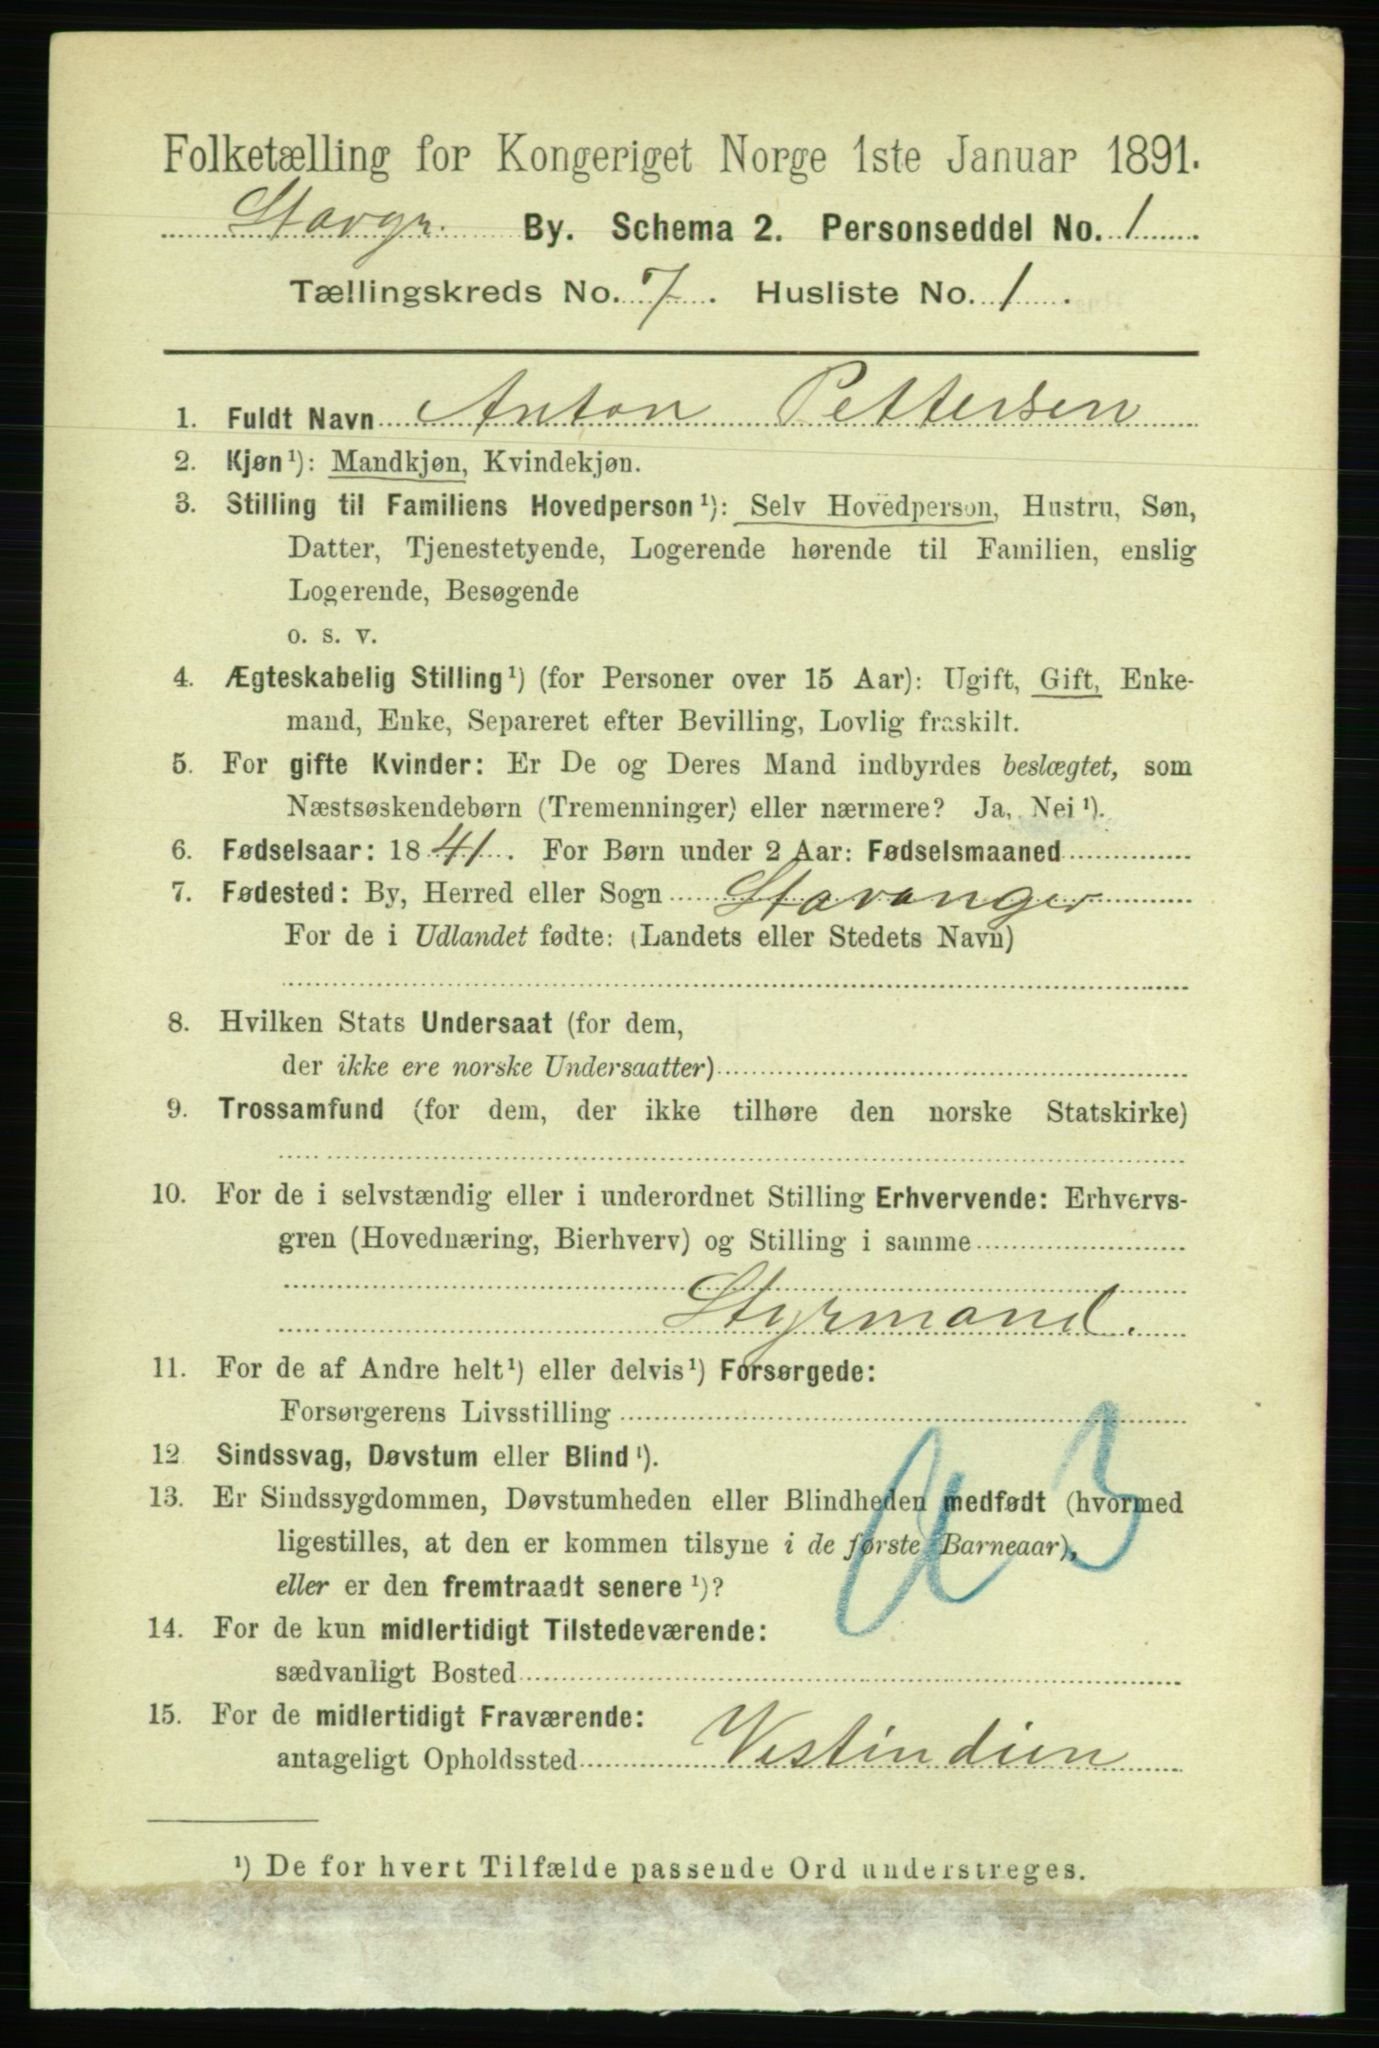 Folketælling for Kongeriget Norge 1ste Januar 1891.
Stavgr. By. Schema 2. Personseddel No. 1
Tællingskreds No. 7. Husliste No. 1.
1. Fuldt Navn Anton Pettersen
2. Kjøn¹): Mandkjøn, Kvindekjøn.
3. Stilling til Familiens Hovedperson¹): Selv Hovedperson, Hustru, Søn,
Datter, Tjenestetyende, Logerende hørende til Familien, enslig
Logerende, Besøgende
o. s. v.
4. Ægteskabelig Stilling¹) (for Personer over 15 Aar): Ugift, Gift, Enke-
mand, Enke, Separeret efter Bevilling, Lovlig fraskilt.
5. For gifte Kvinder: Er De og Deres Mand indbyrdes beslægtet, som
Næstsøskendebørn (Tremenninger) eller nærmere? Ja, Nei¹).
6. Fødselsaar: 1841. For Børn under 2 Aar: Fødselsmaaned
7. Fødested: By, Herred eller Sogn Stavanger
For de i Udlandet fødte: (Landets eller Stedets Navn)
8. Hvilken Stats Undersaat (for dem,
der ikke ere norske Undersaatter)
9. Trossamfund (for dem, der ikke tilhøre den norske Statskirke)
10. For de i selvstændig eller i underordnet Stilling Erhvervende: Erhvervs-
gren (Hovednæring, Bierhverv) og Stilling i samme
Styrmand.
11. For de af Andre helt¹) eller delvis¹) Forsørgede:
Forsørgerens Livsstilling
12 Sindssvag, Døvstum eller Blind¹).
13. Er Sindssygdommen, Døvstumheden eller Blindheden medfødt (hvormed
ligestilles, at den er kommen tilsyne i de første Barneaar),
eller er den fremtraadt senere¹)?
14. For de kun midlertidigt Tilstedeværende:
sædvanligt Bosted
15. For de midlertidigt Fraværende:
antageligt Opholdssted Vestindien
¹) De for hvert Tilfælde passende Ord understreges.